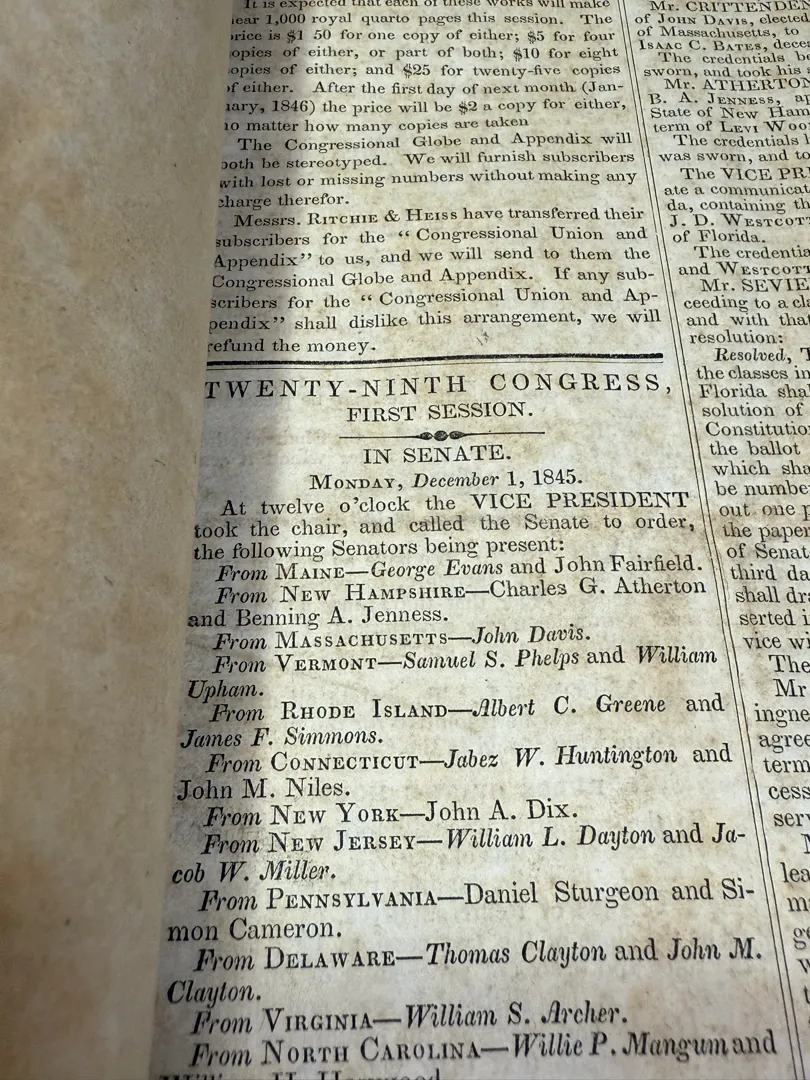 It is expected that each of these works will make
near 1,000 royal quarto pages this session. The
price is $1 50 for one copy of either; $5 for four
copies of either, or part of both; $10 for eight
copies of either; and $25 for twenty-five copies
of either. After the first day of next month (Jan-
uary, 1846) the price will be $2 a copy for either,
no matter how many copies are taken
The Congressional Globe and Appendix will
both be stereotyped. We will furnish subscribers
with lost or missing numbers without making any
charge therefor.
Messrs. RITCHIE & HEISS have transferred their
subscribers for the "Congressional Union and
Appendix" to us, and we will send to them the
Congressional Globe and Appendix. If any sub-
scribers for the "Congressional Union and Ap-
pendix" shall dislike this arrangement, we will
refund the money.
TWENTY-NINTH CONGRESS,
FIRST SESSION.
IN SENATE.
MONDAY, December 1, 1845.
At twelve o'clock the VICE PRESIDENT
took the chair, and called the Senate to order,
the following Senators being present:
From MAINE—George Evans and John Fairfield.
From NEW HAMPSHIRE—Charles G. Atherton
and Benning A. Jenness.
From MASSACHUSETTS—John Davis.
From VERMONT—Samuel S. Phelps and William
Upham.
From RHODE ISLAND—Albert C. Greene and
James F. Simmons.
From CONNECTICUT—Jabez W. Huntington and
John M. Niles.
From NEW YORK—John A. Dix.
From NEW JERSEY—William L. Dayton and Ja-
cob W. Miller.
From PENNSYLVANIA—Daniel Sturgeon and Si-
mon Cameron.
From DELAWARE—Thomas Clayton and John M.
Clayton.
From VIRGINIA—William S. Archer.
From NORTH CAROLINA—Willie P. Mangum and
Mr. CRITTENDEN
of JOHN DAVIS, elected
of Massachusetts, to
ISAAC C. BATES, dece
The credentials be
sworn, and took his
Mr. ATHERTON
B. A. JENNESS, ap
State of New Ham
term of LEVI WOO
The credentials
was sworn, and to
The VICE PRE
ate a communicat
da, containing th
J. D. WESTCOTT
of Florida.
The credentia
and WESTCOTT
Mr. SEVIE
ceeding to a cla
and with that
resolution:
Resolved, T
the classes in
Florida sha
solution of
Constitutio
the ballot
which sha
be numbe
out one p
the paper
of Senat
third da
shall dr
serted i
vice wi
The
Mr
ingne
agree
term
cess
ser
lea
m